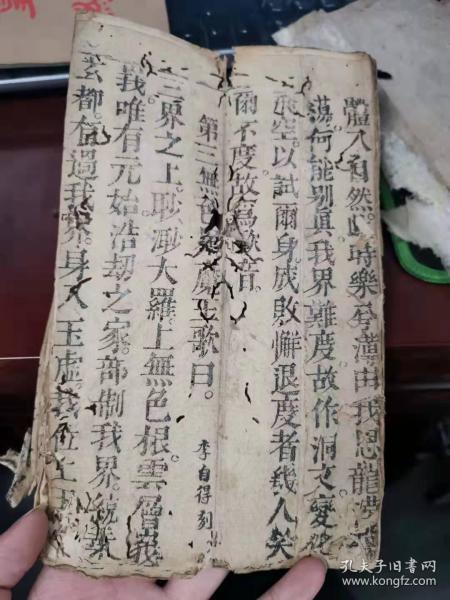 體入自然。此時樂兮薄由我恩。龍
漢何能別真。我界難度。故作洞文。變
飛空。以試爾身。成敗懈退。度者幾人。笑
爾不度。故為歌音。
第三無色界魔王歌曰。
李自得刻
三界之上。眇渺大羅。上無色根。雲層峩
峩。唯有元始浩劫之家。部制我界。統
玄都。有過我界。身入玉虛。我位上
孔夫子旧书网
www.kongfz.com